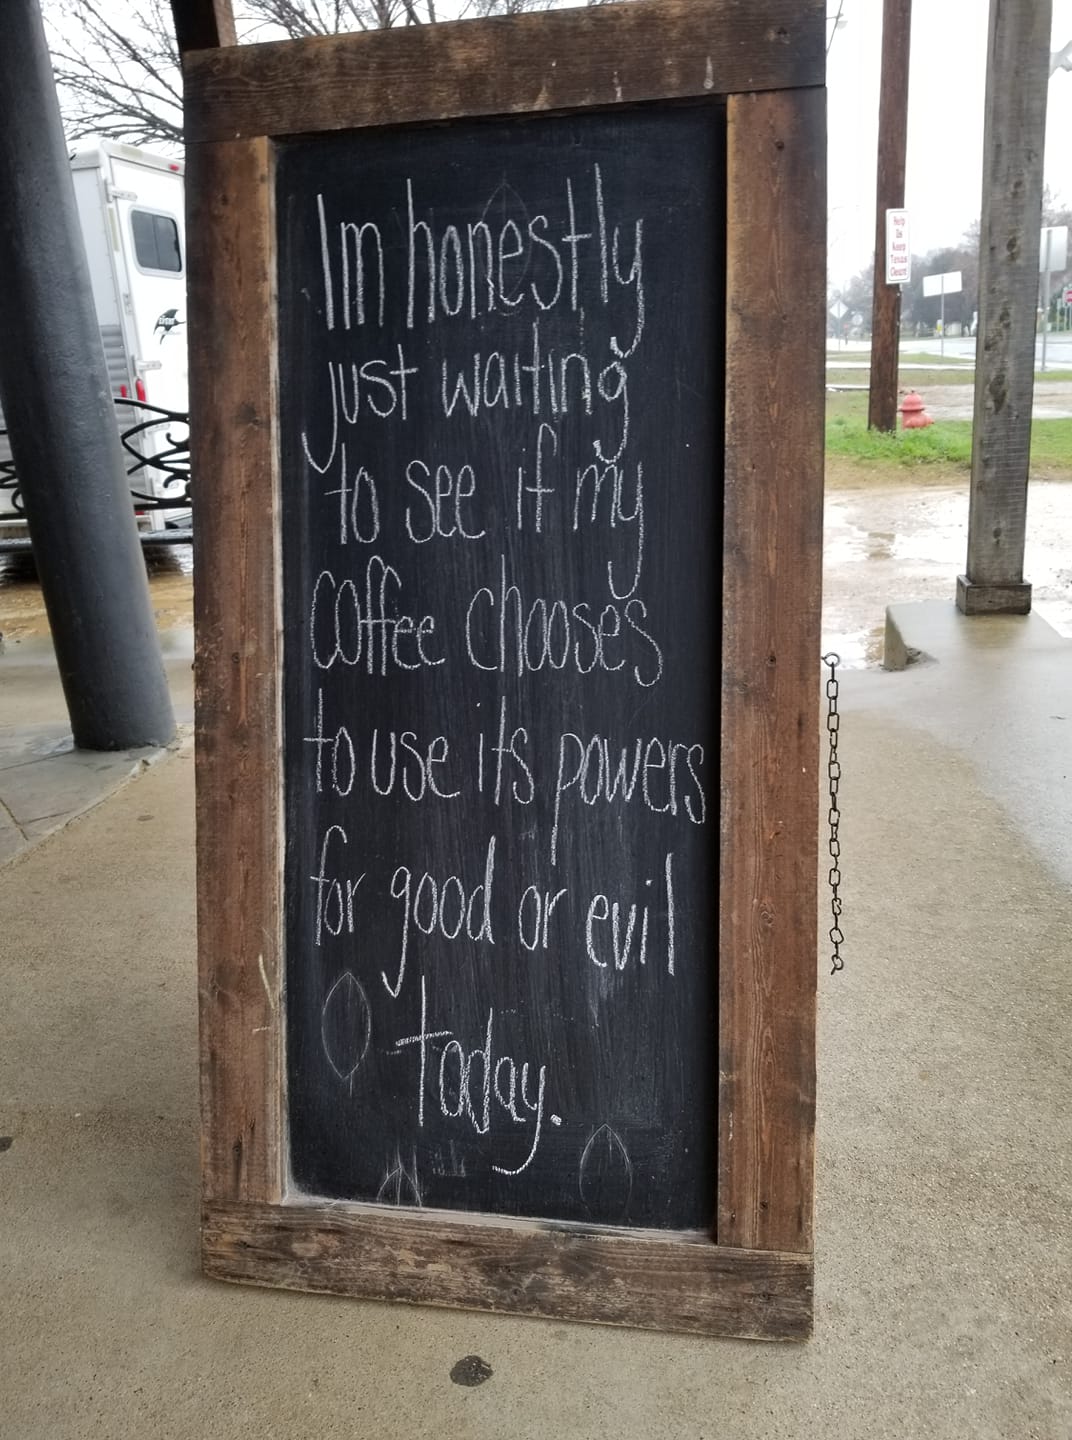 Im honestly
just waiting
to see if my
coffee chooses
to use its powers
for good or evil
today.
Help
Us
Keep
Texas
Clean!